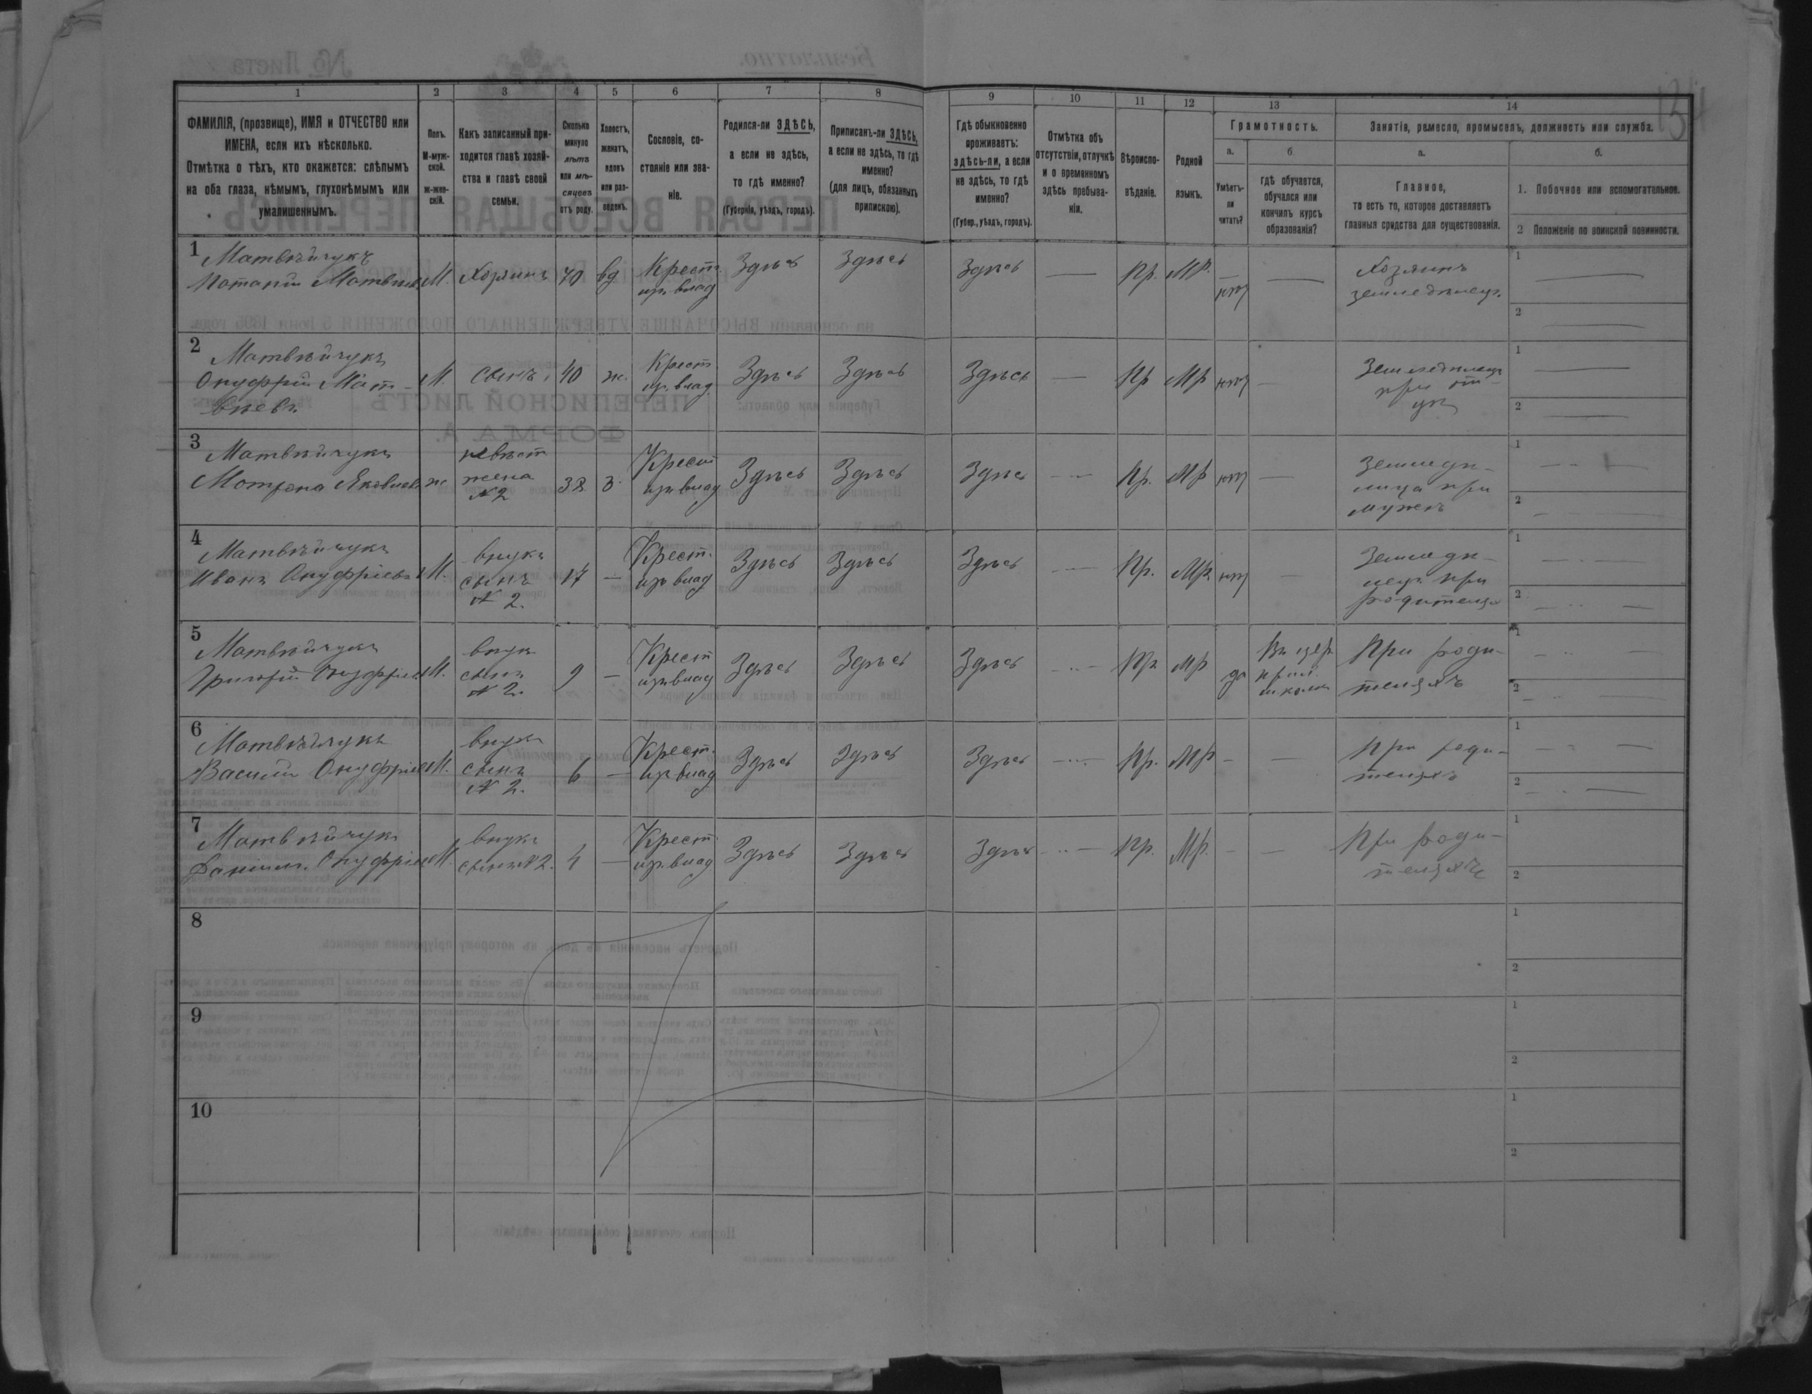 134
1 2 3 4 5 6 7 8 9 10 11 12 13 14
ФАМИЛІЯ, (прозвище), ИМЯ и ОТЧЕСТВО или
ИМЕНА, если ихъ нѣсколько.
Отмѣтка о тѣхъ, кто окажется: слѣпымъ
на оба глаза, нѣмымъ, глухонѣмымъ или
умалишеннымъ.
Полъ.
М-муж-
ской.
ж-жен-
скій.
Какъ записанный при-
ходится главѣ хозяй-
ства и главѣ своей
семьи.
Сколько
минуло
лѣтъ
или мѣ-
сяцевъ
отъ роду.
Холостъ,
женатъ,
вдовъ
или раз-
веденъ.
Сословіе, со-
стояніе или зва-
ніе.
Родился-ли ЗДѢСЬ,
а если не здѣсь,
то гдѣ именно?
(Губернія, уѣздъ, городъ).
Приписанъ-ли ЗДѢСЬ,
а если не здѣсь, то гдѣ
именно?
(для лицъ, обязанныхъ
припискою).
Гдѣ обыкновенно
проживаетъ:
здѣсь-ли, а если
не здѣсь, то гдѣ
именно?
(Губер., уѣздъ, городъ).
Отмѣтка объ
отсутствіи, отлучкѣ
и о временномъ
здѣсь пребыва-
ніи.
Вѣроиспо-
вѣданіе.
Родной
языкъ.
Грамотность.
а. б.
Умѣетъ-
ли
читать?
гдѣ обучается,
обучался или
кончилъ курсъ
образованія?
Занятіе, ремесло, промыселъ, должность или служба.
а. б.
Главное,
то есть то, которое доставляетъ
главныя средства для существованія.
1. Побочное или вспомогательное.
2 Положеніе по воинской повинности.
1 Матвѣйчукъ
М. Хозяинъ 70 вд Крест. изъ влад Здѣсь Здѣсь Здѣсь — Пр. МР. — нѣтъ — Хозяинъ
земледѣлецъ.
1 —
2 —
2 Матвѣйчукъ
Онуфрій Мат-
вѣевъ
М. сынъ 40 ж. Крест изъ влад Здѣсь Здѣсь Здѣсь — Пр МР нѣтъ — Земледѣлецъ
при от-
цѣ
1 —
2 —
3 Матвѣйчукъ
Мотрона Яковлев
ж невѣст
жена
№2
38 з. Крест изъ влад Здѣсь Здѣсь Здѣсь — Пр. МР нѣтъ — Земледѣ-
лица при
мужѣ
1 —
2 —
4 Матвѣйчукъ
Иванъ Онуфріевъ
М. внукъ
сынъ
№ 2.
17 — Крест. изъ влад Здѣсь Здѣсь Здѣсь — Пр. МР нѣтъ — Земледѣ-
лецъ при
родителяхъ
1 —
2 —
5 Матвѣйчукъ
Григорій Онуфріев
М. внукъ
сынъ
№ 2.
9 — Крест изъ влад Здѣсь Здѣсь Здѣсь — Пр МР да Въ цер
прих.
школѣ
При роди-
теляхъ
1 —
2 —
6 Матвѣйчукъ
Василій Онуфріев
М. внукъ
сынъ
№ 2.
6 — Крест. изъ влад Здѣсь Здѣсь Здѣсь — Пр. МР — — При роди-
теляхъ
1 —
2 —
7 Матвѣйчукъ
Данило Онуфріев
М. внукъ
сынъ №2.
4 — Крест изъ влад Здѣсь Здѣсь Здѣсь — Пр. МР. — — При роди-
теляхъ
1
2
8
1
2
9
1
2
10
1
2